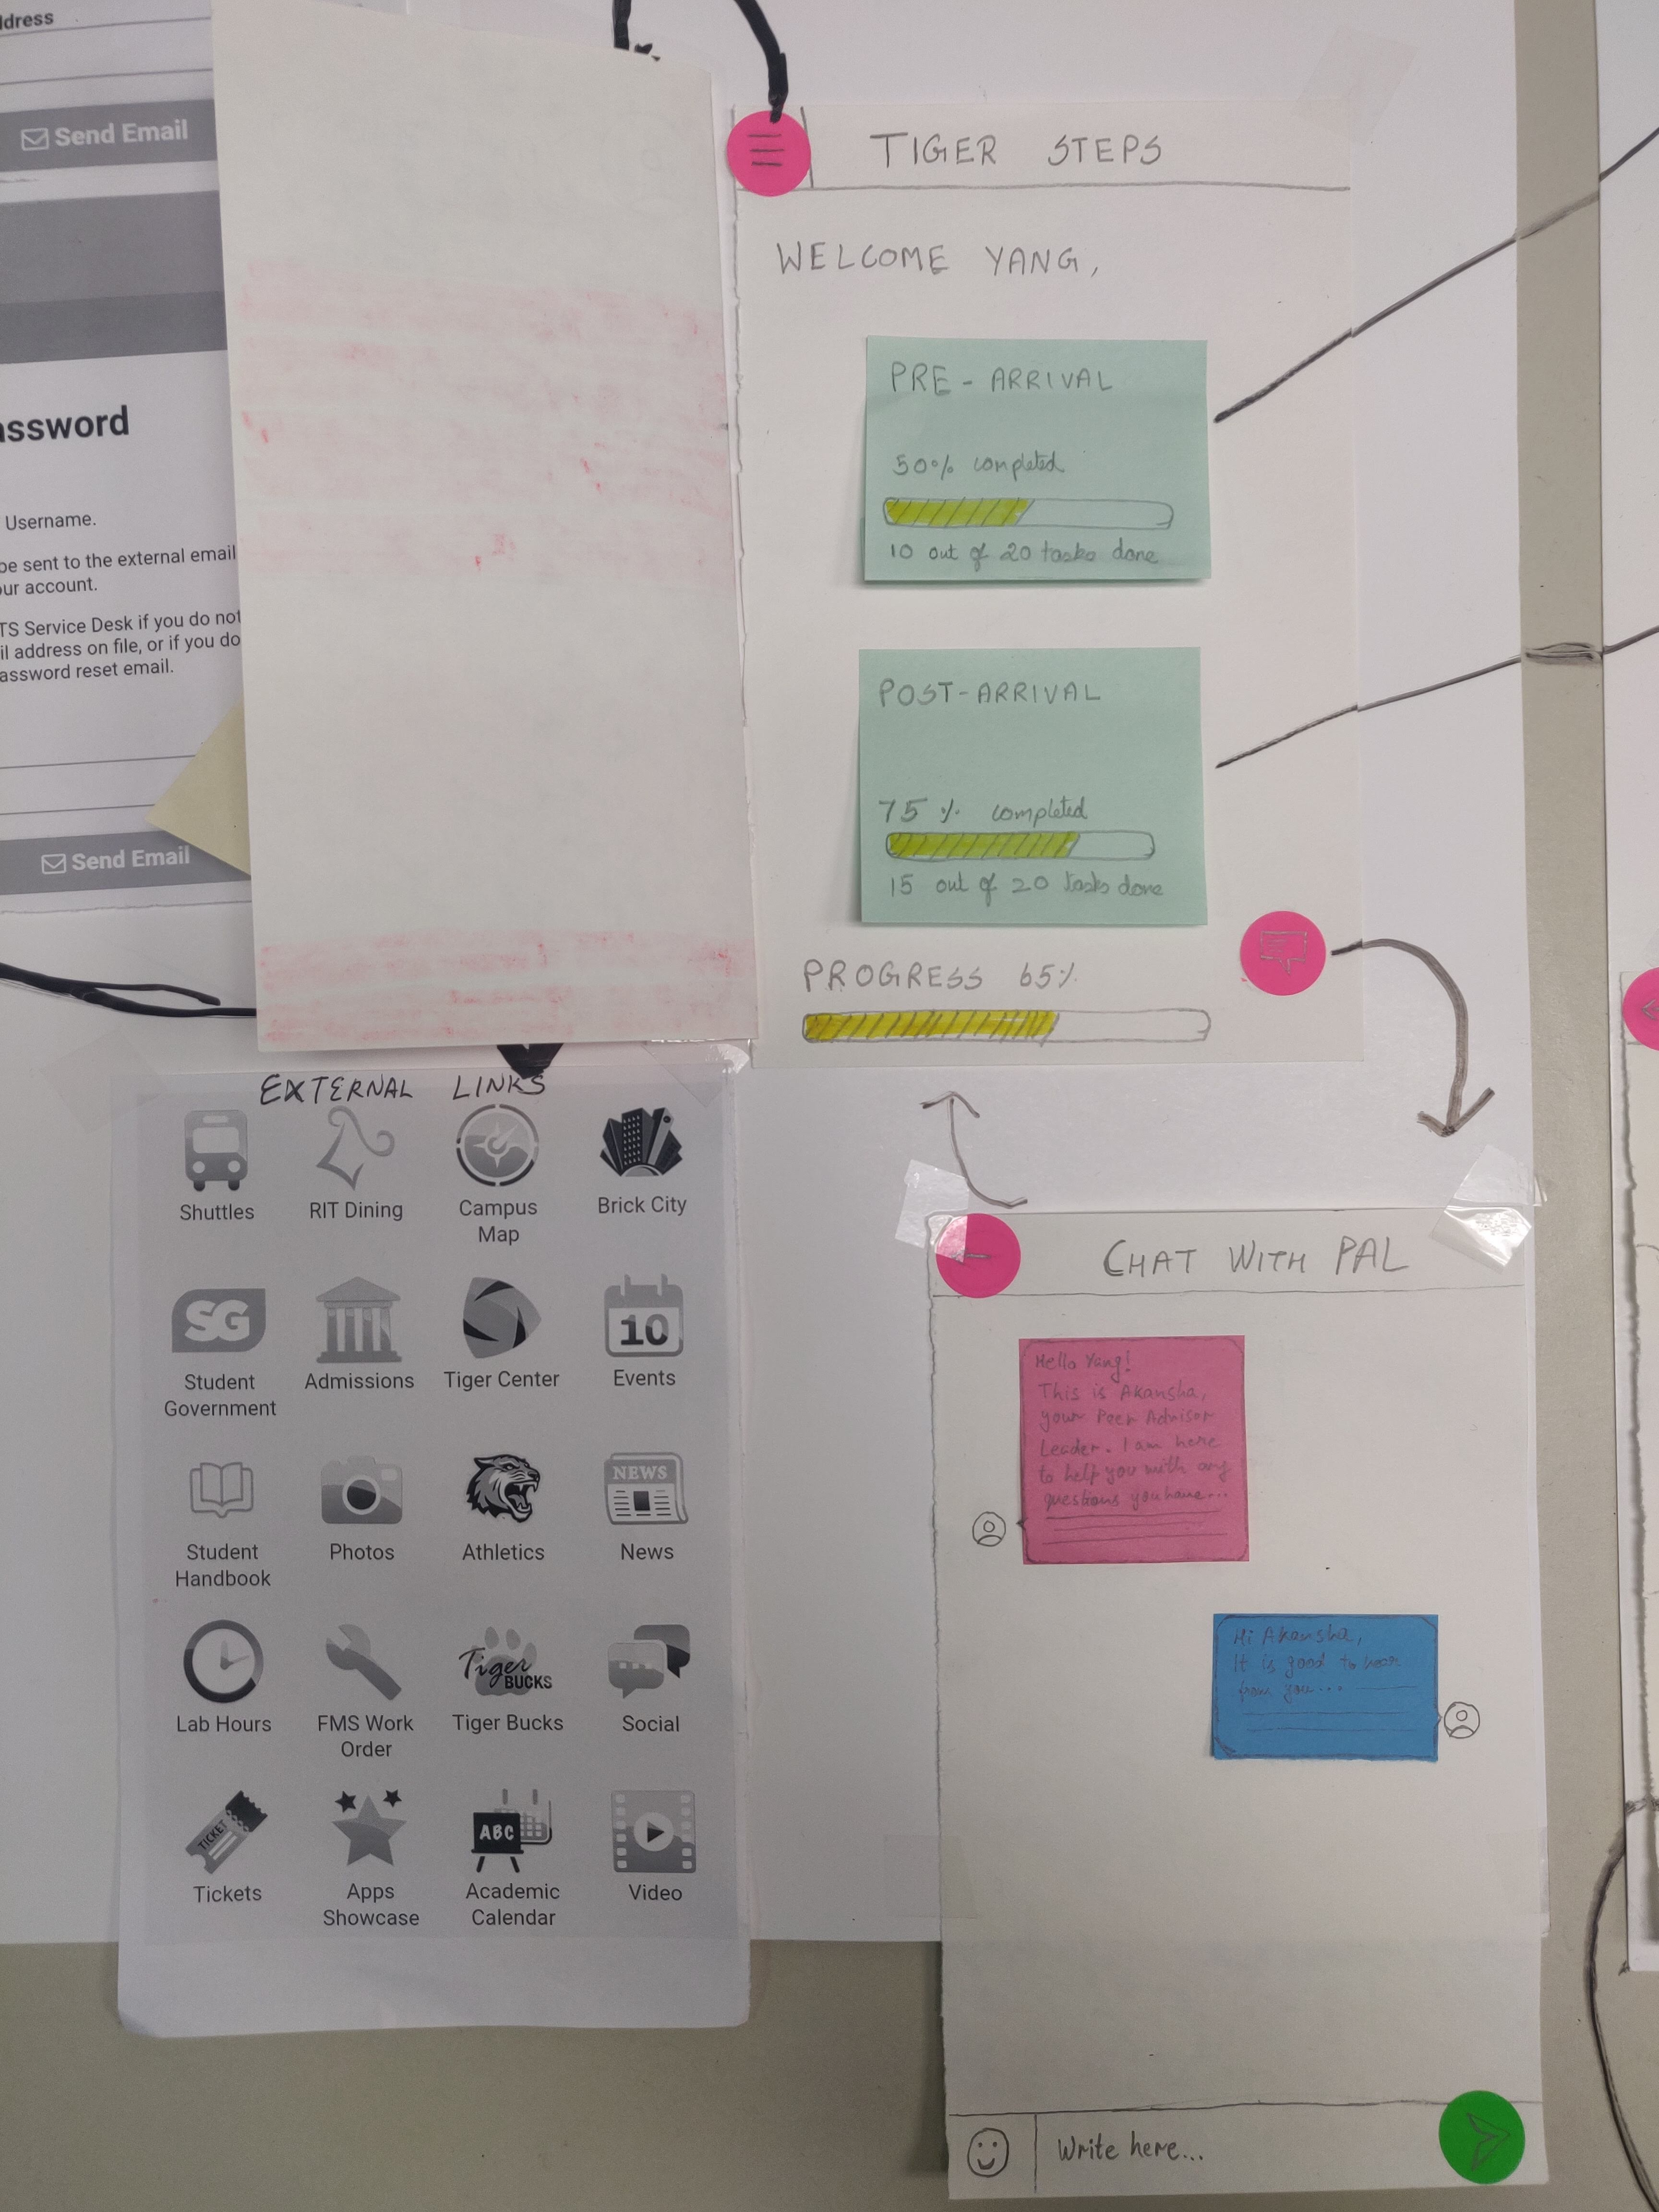 ddress
Send Email
assword
Username.
be sent to the external email
our account.
TS Service Desk if you do not
il address on file, or if you do
assword reset email.
Send Email
TIGER STEPS
WELCOME YANG,
PRE-ARRIVAL
50% completed
10 out of 20 tasks done
POST-ARRIVAL
75% completed
15 out of 20 tasks done
PROGRESS 65%
EXTERNAL LINKS
Shuttles
RIT Dining
Campus
Map
Brick City
SG
Student
Government
Admissions
Tiger Center
10
Events
Student
Handbook
Photos
Athletics
NEWS
News
Lab Hours
FMS Work
Order
Tiger
BUCKS
Tiger Bucks
Social
TICKET
Tickets
Apps
Showcase
ABC
Academic
Calendar
Video
CHAT WITH PAL
Hello Yang!
This is Akansha,
your Peer Advisor
Leader. I am here
to help you with any
questions you have...
Hi Akansha,
It is good to hear
from you...
Write here...